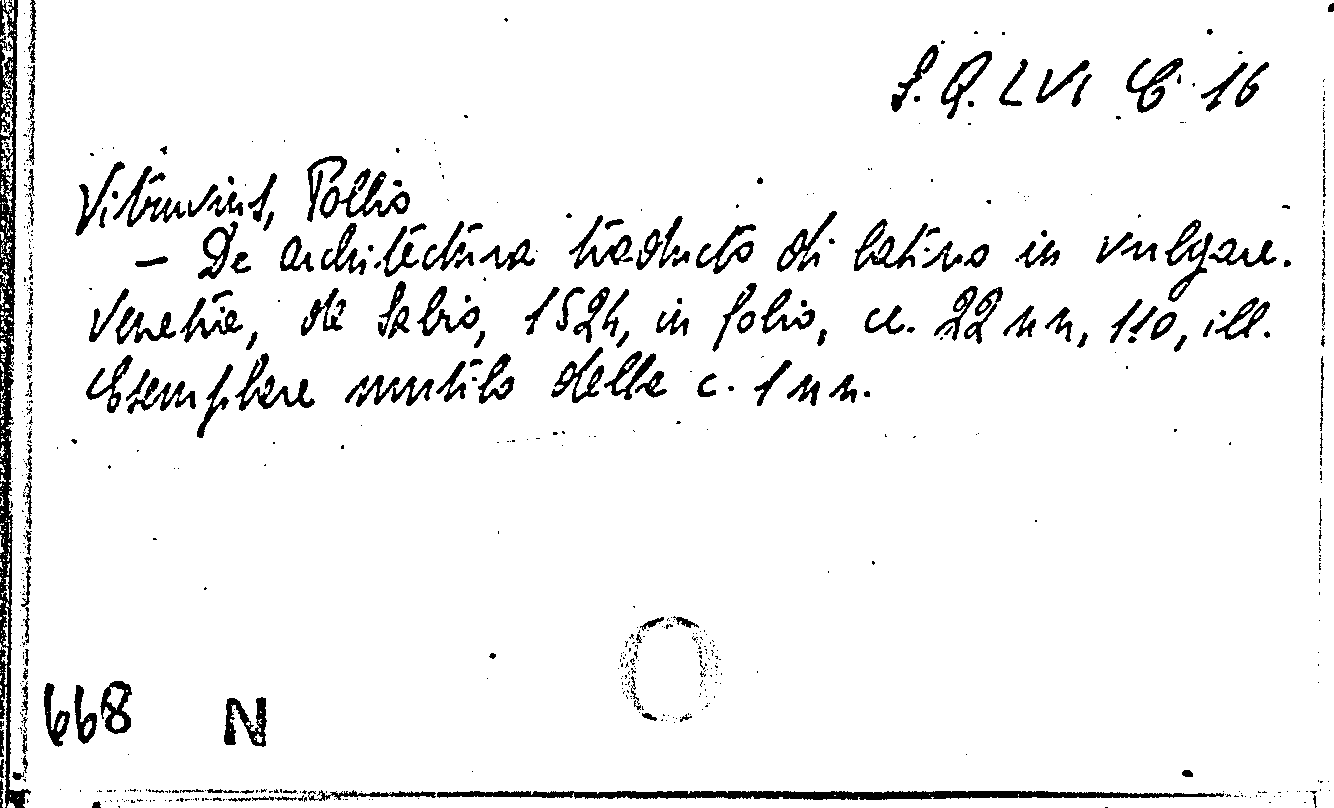 S.Q. LVI C 16
Vitruvius, Pollio
– De architectura traducto di latino in vulgare.
Venetia, de Sabio, 1524, in folio, cc. 22 n n, 110, ill.
Esemplare mutilo della c. 1 n n.
668 N